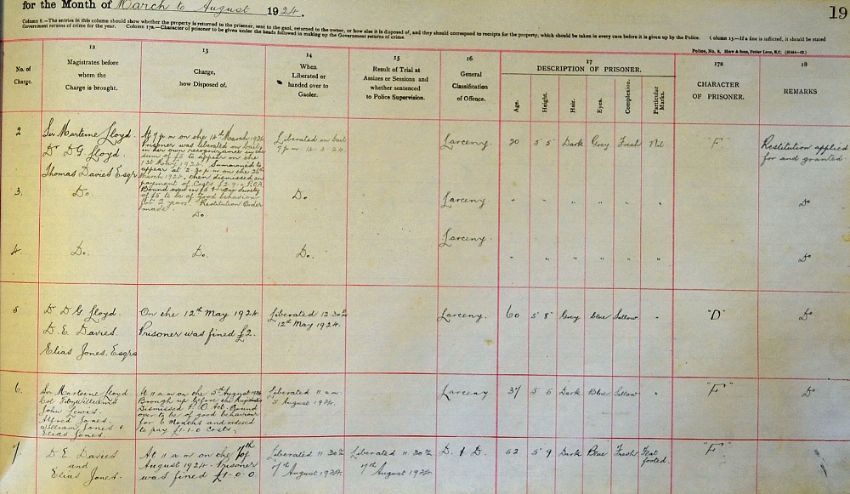 for the Month of March to August 1924.
19
Column 8.—The entries in this column should show whether the property is returned to the prisoner, sent to the gaol, returned to the owner, or how else it is disposed of, and they should correspond to receipts for the property, which should be taken in every case before it is given up by the Police. Column 15.—If a fine is inflicted, it should be stated
Government returns of crime for the year. Column 17a.—Character of prisoner to be given under the heads followed in making up the Government returns of crime.
Police, No. 8.
12 13 14 15 16 17 17a 18
No. of Charge.
Magistrates before whom the Charge is brought.
Charge, how Disposed of.
When Liberated or handed over to Gaoler.
Result of Trial at Assizes or Sessions and whether sentenced to Police Supervision.
General Classification of Offence.
DESCRIPTION OF PRISONER.
Age. Height. Hair. Eyes. Complexion. Particular Marks.
CHARACTER OF PRISONER.
REMARKS
2
Sir Marteine Lloyd.
Dr D G Lloyd.
Thomas Davies Esqrs
At 7 p m on the 12th March 1924
Prisoner was liberated on bail
in her own recognizance in the
sum of £5 to appear on the
Summoned to
appear at 2.30 p m on the
March 1924, then dismissed on
payment of Costs
Bound over in £5 &
of £5 to be of good behaviour
for 2 years. Restitution Order
made.
Liberated on bail
7 p m 12 3 24.
Larceny. 20 5 5 Dark Grey Fresh Nil "F"
Restitution applied
for and granted
3.
Do. Do Do. Larceny " " " " " " Do
4
Do. Do. Do. Larceny. " " " " " " Do
5
Dr D G Lloyd.
D. E. Davies.
Elias Jones. Esqrs
On the 12th May 1924
Prisoner was fined £2.
Liberated 12.30
12th May 1924.
Larceny. 60 5 8 Grey Blue Sallow " "D" Do
6.
Sir Marteine Lloyd
Col Fitzwilliams
John Lewis
Alfred Jones.
William Jones &
Elias Jones.
At 11 a m on the 5th August 1924
Brought up before the Magistrates
Dismissed Bound
over to be of good behaviour
for 6 months and ordered
to pay £1-1-0 costs.
Liberated 11 a m
5 August 1924.
Larceny 37 5 6 Dark Blue Sallow " "F" Do
7
D. E Davies
and
Elias Jones.
At 11 a m on the 7th of
August 1924. Prisoner
was fined £1-0-0
Liberated 11.30
7th August 1924
Liberated 11.30
7th August 1924.
D. & D. 52 5 9 Dark Blue Fresh Flat
footed. "F".